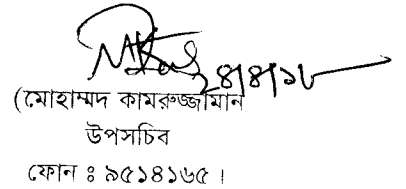 ২৪/৪/১৮
(মোহাম্মদ কামরুজ্জামান
উপসচিব
ফোন ঃ ৯৫১৪১৬৫ ।